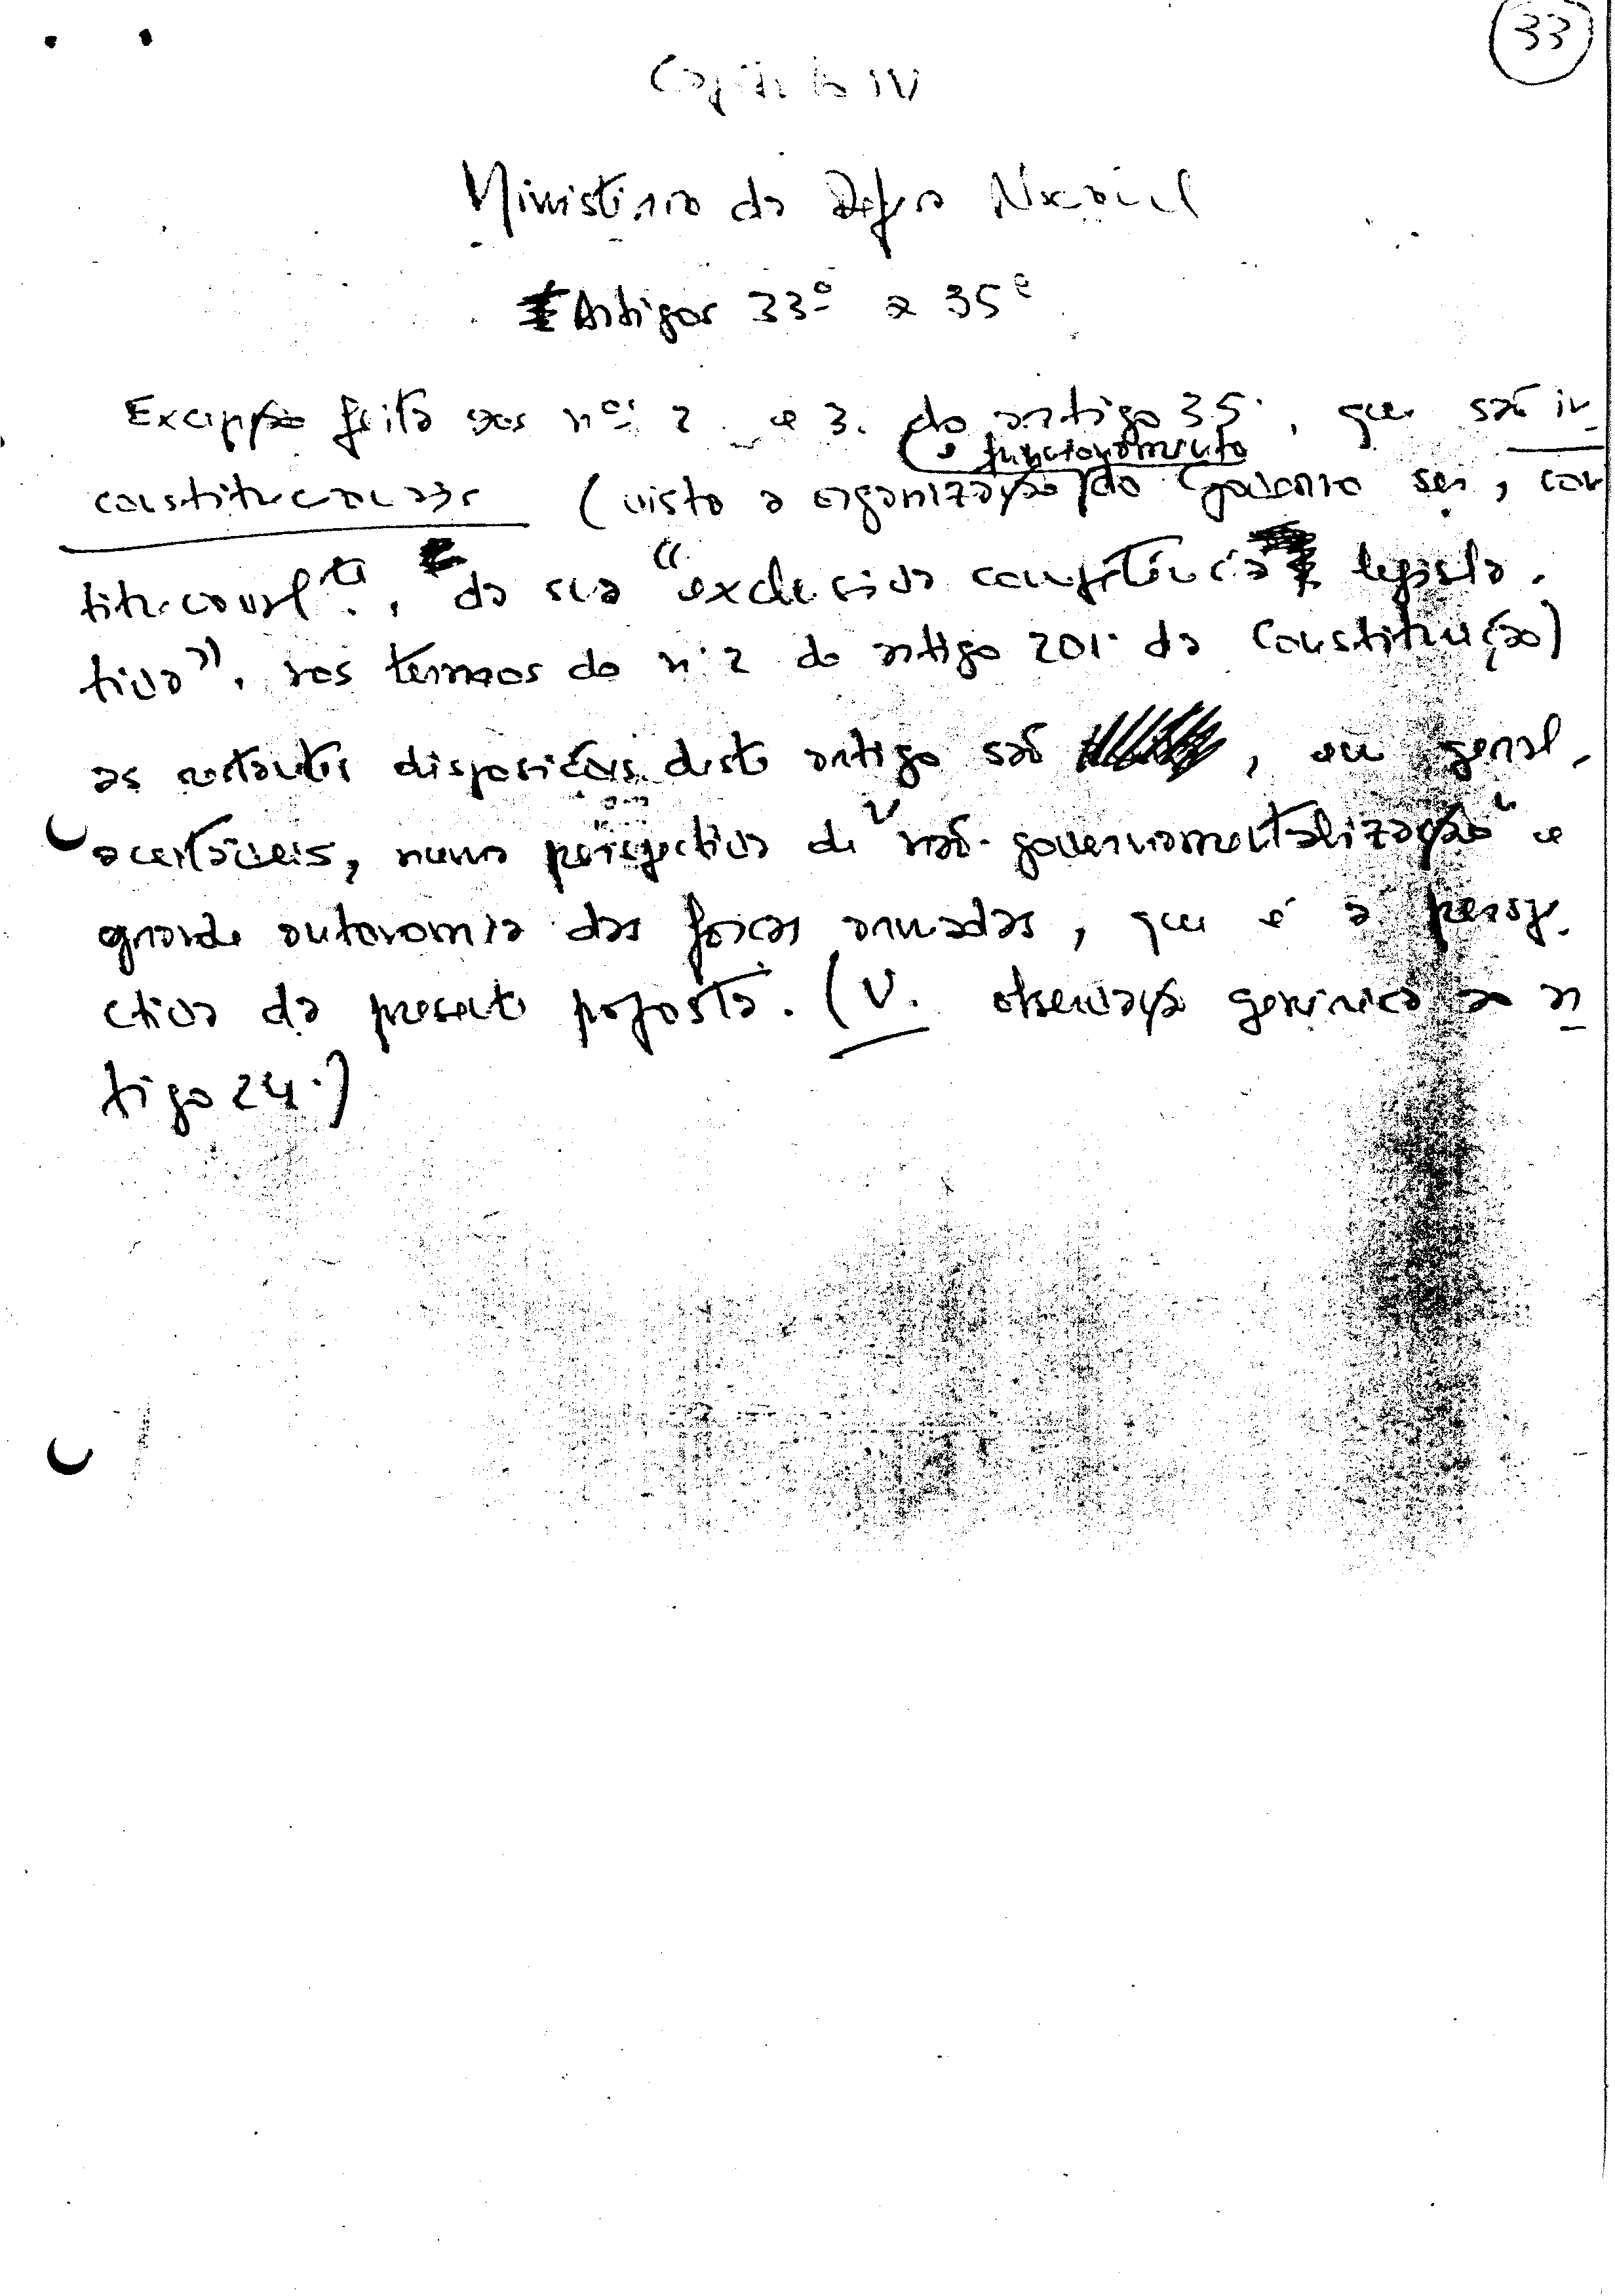 33
Capítulo IV
Ministério da Defesa Nacional
Artigos 33º a 35º
Excepção feita aos nºs 2. e 3. do artigo 35., que são in-
constitucionais (visto a organização e funcionamento do Governo ser, cons
titucionalte., da sua "exclusiva competência legisla-
tiva", nos termos do nº 2 do artigo 201. da Constituição)
as restantes disposições deste artigo são, em geral,
aceitáveis, numa perspectiva de "não-governamentalização" e
grande autonomia das forças armadas, que é a perspe-
ctiva da presente proposta. (V. observação genérica ao ar
tigo 24.)